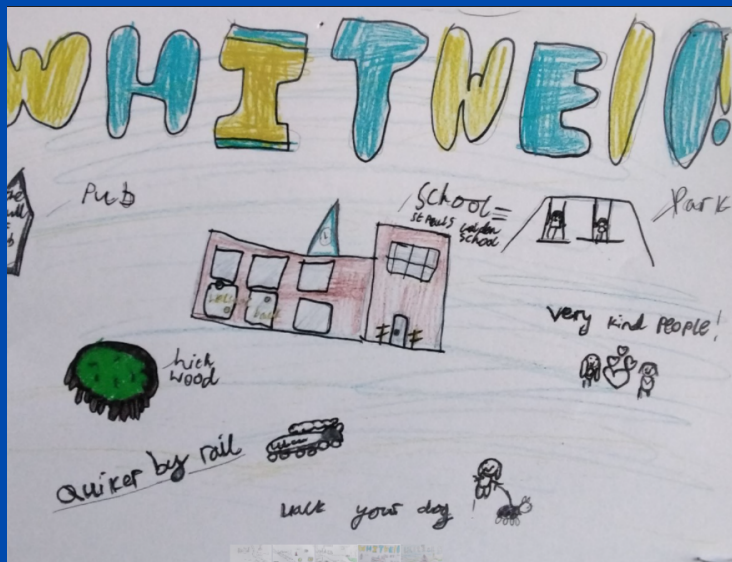 WHITWEll!
Pub
School
St Pauls walden
School
Park
very kind People!
wood
Quiker by rail
your dog